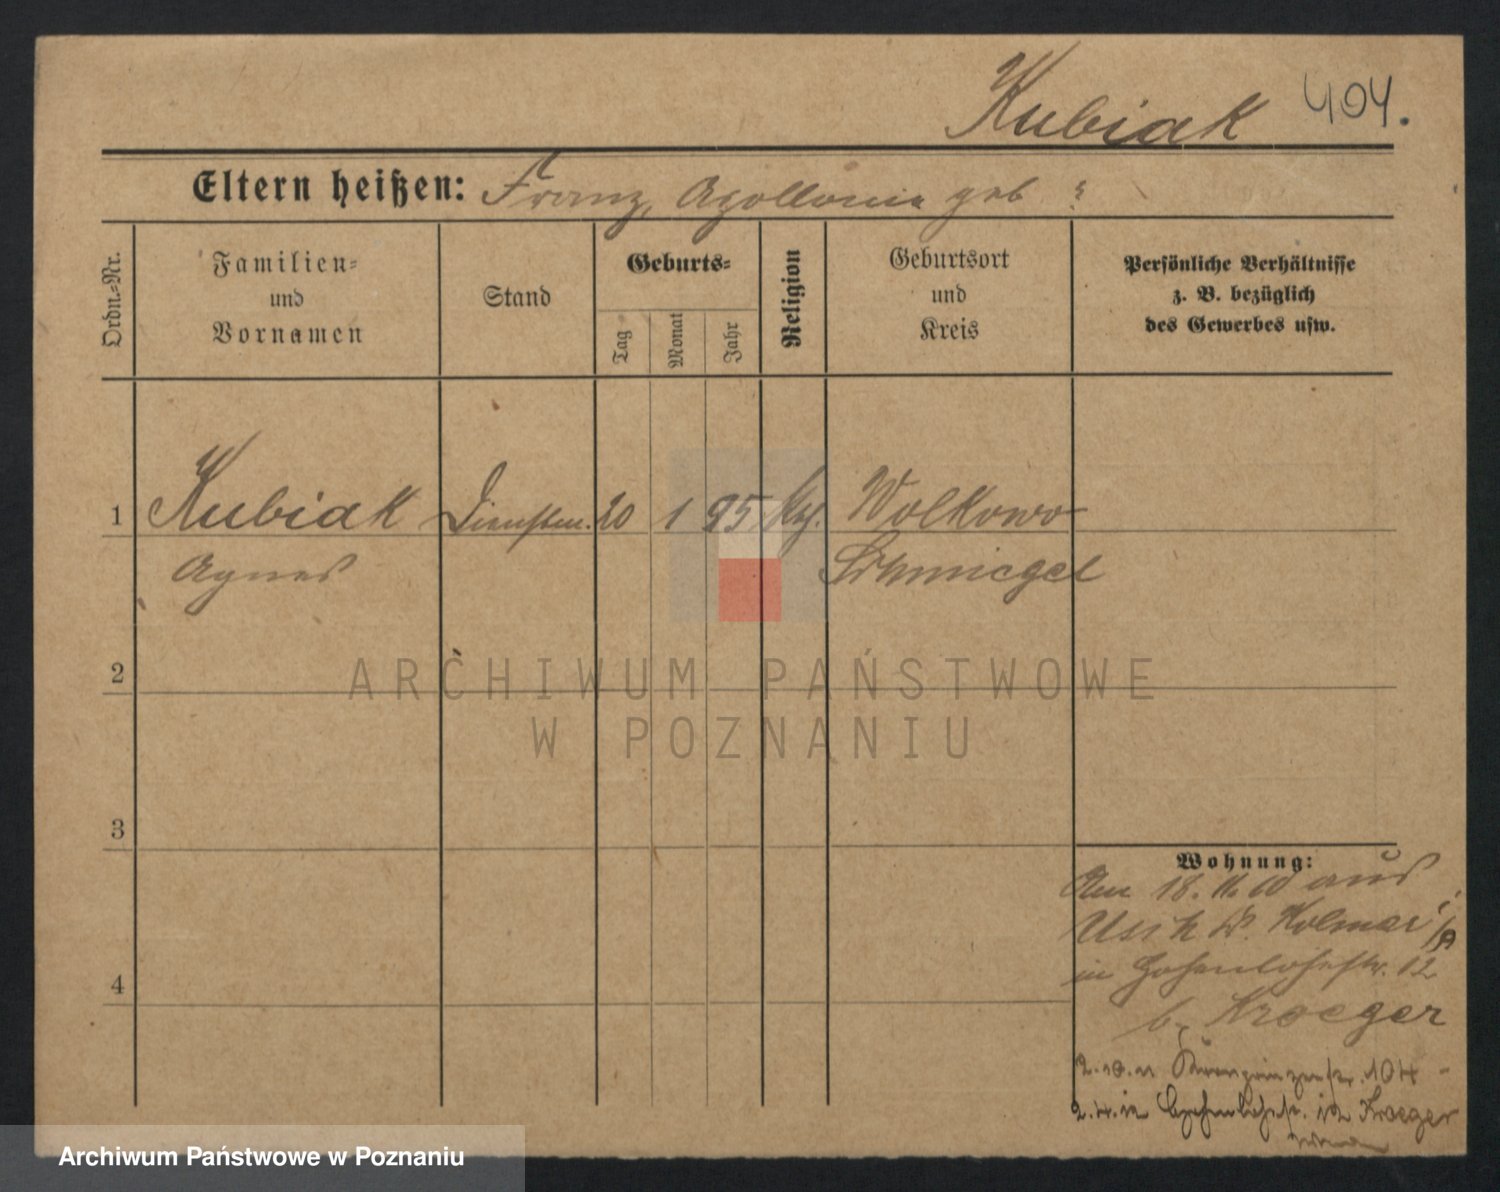 Kubiak 404.
Eltern heißen: Franz, Apollonia geb ?
Ordn.-Nr.
Familien-
und
Vornamen
Stand
Geburts-
Tag
Monat
Jahr
Religion
Geburtsort
und
Kreis
Persönliche Verhältnisse
z. B. bezüglich
des Gewerbes usw.
1 Kubiak Dienstm. 20 1 95 Wolkowo
Agnes Schmiegel
2
3
4
Wohnung:
Am 18. aus
Kolmar
in Hohenlohestr. 12
b. Kroeger
2.10.11 Kronprinzenstr. 104
2.4.12 Hohenlohestr. 12 Kroeger
ARCHIWUM PAŃSTWOWE
W POZNANIU
Archiwum Państwowe w Poznaniu